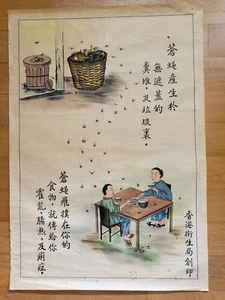 蒼蠅產生於
無遮蓋的
糞堆·及垃圾裏·
蒼蠅飛撲在你的
食物·就傳給你
霍亂·腸热·及痢症·
香港衛生局創印